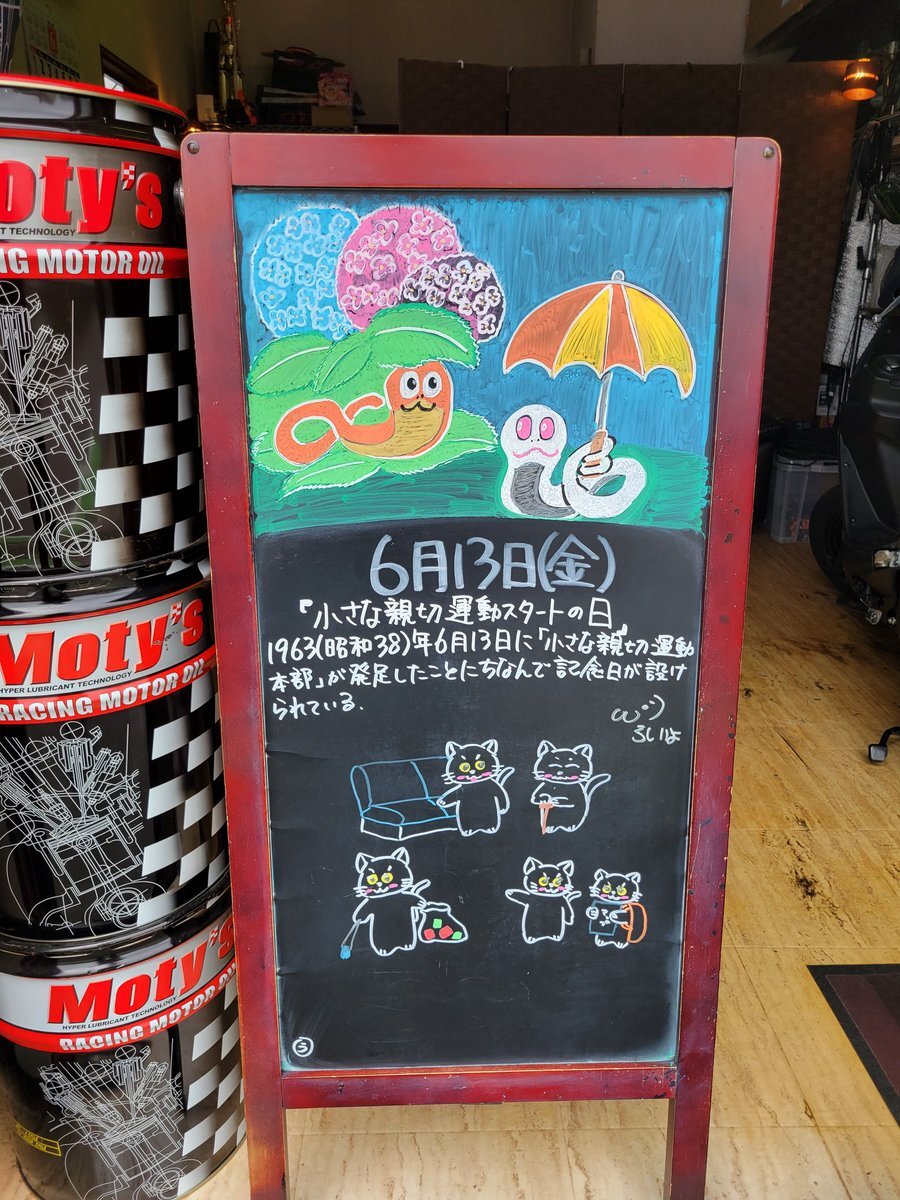 Moty's
TECHNOLOGY
RACING MOTOR OIL
6月13日(金)
「小さな親切運動スタートの日」
1963(昭和38)年6月13日に「小さな親切運動
本部」が発足したことにちなんで記念日が設け
られている.
Moty's
HYPER LUBRICANT TECHNOLOGY
RACING MOTOR OIL
Moty's
HYPER LUBRICANT TECHNOLOGY
RACING MOTOR OIL